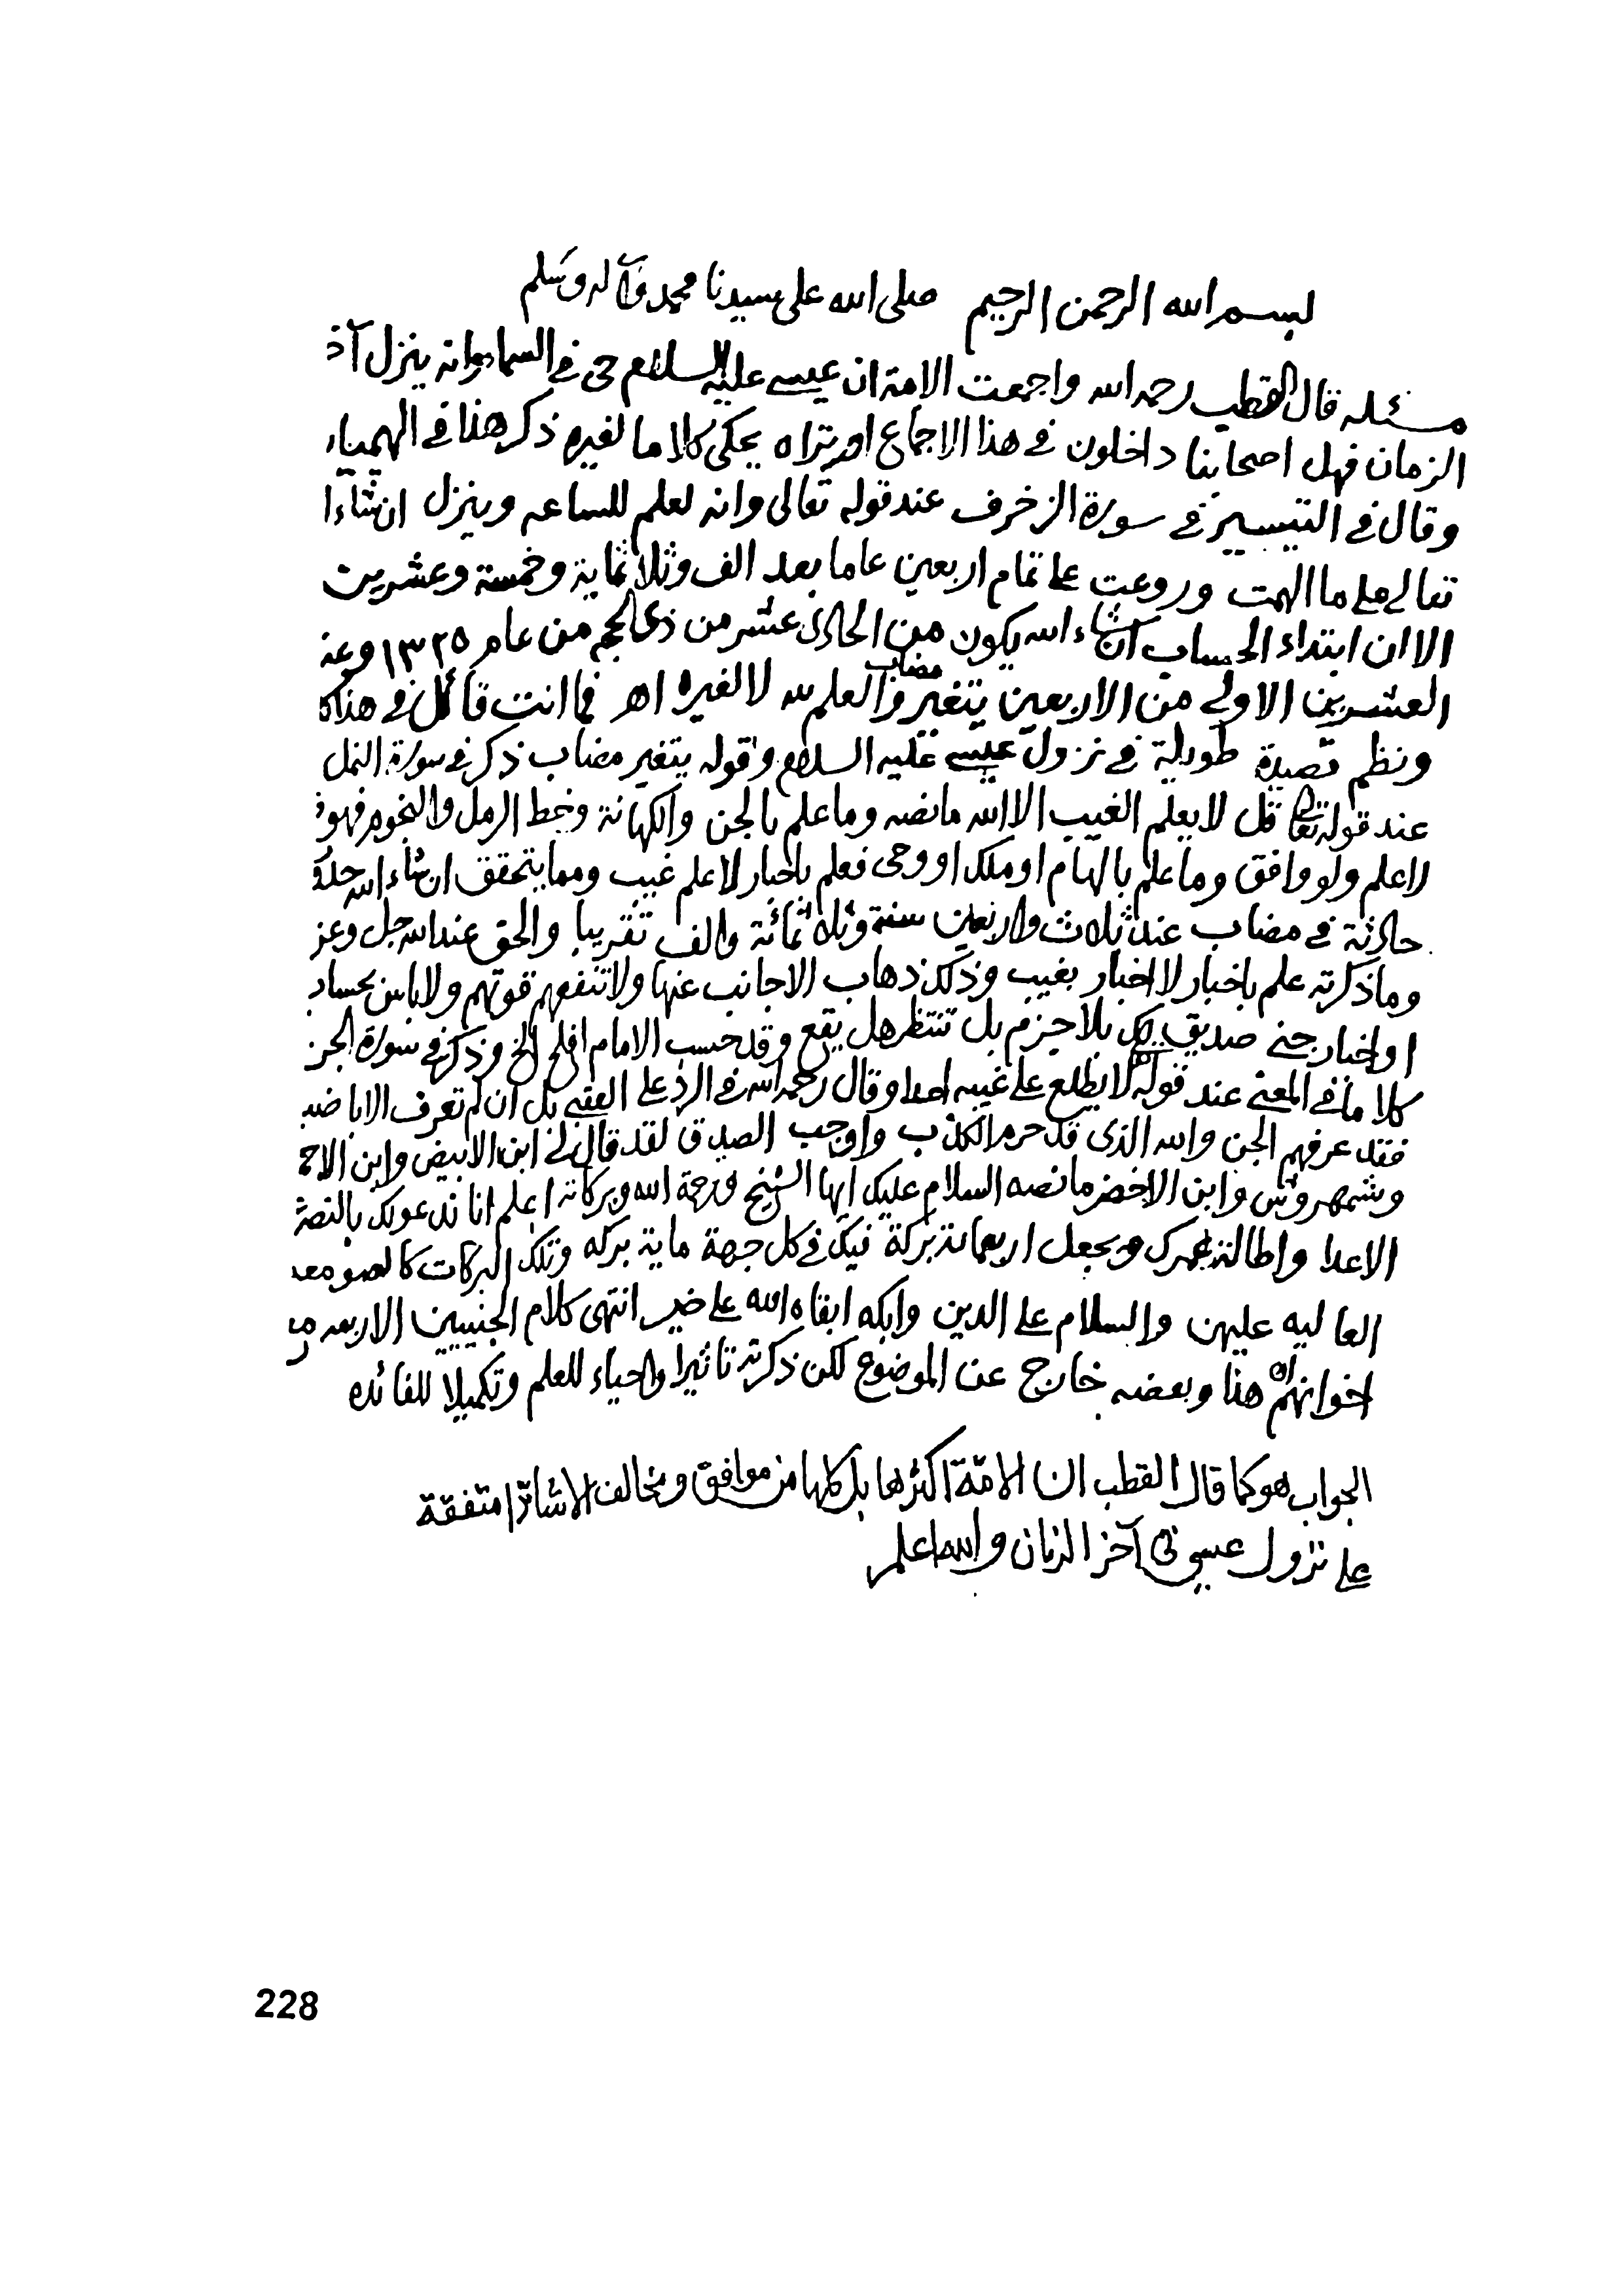 بسم الله الرحمن الرحيم صلى الله على سيدنا محمد وآله وسلم
مسئله قال القطب رحمه الله واجمعت الامة ان عيسى عليه السلام حى فى السماء وانه ينزل آخر
الزمان فهل اصحابنا داخلون فى هذا الاجماع او تراه يحكى كلاما لغيره ذكر هذا فى الهميان
وقال فى التيسير فى سورة الزخرف عند قوله تعالى وانه لعلم للساعه وينزل ان شاء ا
تعالى على ما الهمت وروعت على تمام اربعين عاما بعد الف وثلاثماية وخمسة وعشرين
الا ان ابتداء الحساب ان شاء الله يكون من الحادى عشر من ذى الحجه من عام ١٣٢٥ وعند
العشرين الاولى من الاربعين يتغير مضاب والعلم لله لا لغيره اهـ فما انت قائل فى هذا
ونظم قصيدة طويلة فى نزول عيسى عليه السلام وقوله يتغير مضاب ذكر فى سورة النمل
عند قوله تعالى قل لا يعلم الغيب الا الله ما نصه وما علم بالجن والكهانة وخط الرمل والنجوم فهو
لا علم ولو وافق وما علم بالهام او ملك او وحى فعلم باخبار لا علم غيب ومما يتحقق ان شاء الله
حادثة فى مضاب عند ثلاث واربعين سنة وثلاثمائة والف تقريبا والحق عند الله جل وعز
وما ذكرته علم باخبار لا اخبار بغيب وذلك ذهاب الاجانب عنها ولا تنفعهم قوتهم ولا باس بحساب
او اخبار جنى صديق لك بلا جزم بل تنتظر هل يقع وقد حسب الامام افلح الخ وذكر فى سورة الجن
كلاما فى المعنى عند قوله لا يطلع على غيبه احدا وقال رحمه الله فى الرد على العقبى بل ان لم تعرف الاباضية
فقد عرفهم الجن والله الذى قد حرم الكذب واوجب الصدق لقد قال لى ابن الابيض وابن الاحمر
وشمهروش وابن الاخضر ما نصه السلام عليك ايها الشيخ ورحمة الله وبركاته اعلم انا ندعو لك بالنصر
الاعدا واطالة عمرك ويجعل اربعمائة بركة فيك فى كل جهة ماية بركه وتلك البركات كالصومعه
العاليه عليهن والسلام على الدين وابكه ابقاه الله على خير انتهى كلام الجنيين الاربعه من
اخوانهم اهـ هذا وبعضه خارج عن الموضوع لكن ذكرته تاثيرا واحياء للعلم وتكميلا للفائده
الجواب هو كما قال القطب ان الامّة اكثرها بل كلها من موافق ومخالف الا شاذا متفقة
على نزول عيسى فى آخر الزمان والله اعلم
228